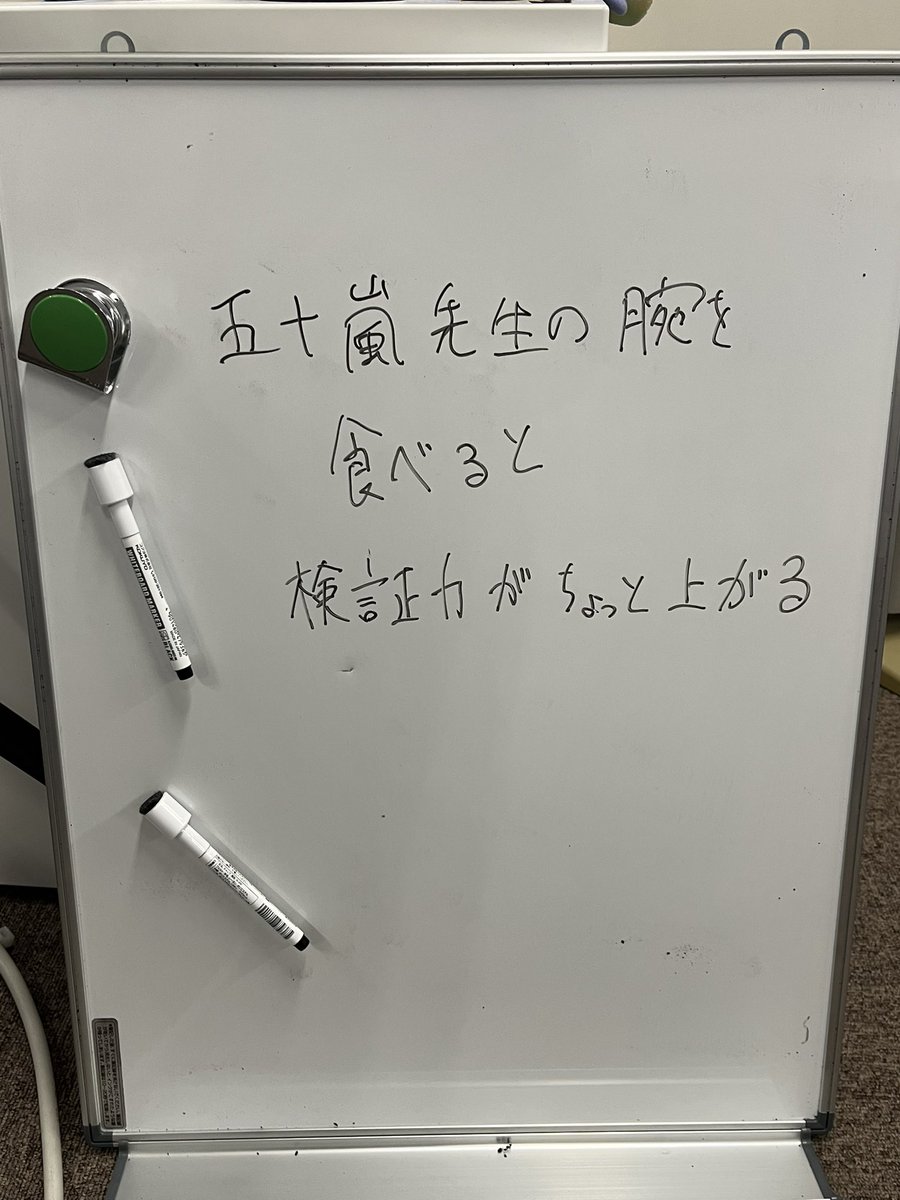 五十嵐先生の腕を
食べると
検証力がちょっと上がる
WHITEBOARD MARKER